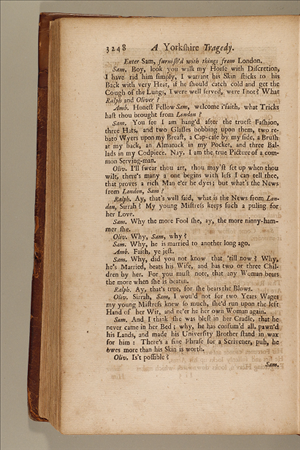 3248 A Yorkshire Tragedy.
Enter Sam, furnish'd with things from London.
Sam. Boy, look you walk my Horse with Discretion,
I have rid him simply, I warrant his Skin sticks to his
Back with very Heat, if he should catch cold and get the
Cough of the Lungs, I were well served, were I not? What
Ralph and Oliver?
Amb. Honest Fellow Sam, welcome i'faith, what Tricks
hast thou brought from London?
Sam. You see I am hang'd after the truest Fashion,
three Hats, and two Glasses bobbing upon them, two re-
bato Wyers upon my Breast, a Cap-case by my side, a Brush
at my back, an Almanack in my Pocket, and three Bal-
lads in my Codpiece. Nay, I am the true Picture of a com-
mon Serving-man.
Oliv. I'll swear thou art, thou may'st set up when thou
wilt, there's many a one begins with less I can tell thee,
that proves a rich Man e'er he dyes; but what's the News
from London, Sam?
Ralph. Ay, that's well said, what is the News from Lon-
don, Sirrah? My young Mistress keeps such a puling for
her Love.
Sam. Why the more Fool she, ay, the more ninny-ham-
mer she.
Oliv. Why, Sam, why?
Sam. Why, he is married to another long ago.
Amb. Faith, ye jest.
Sam. Why, did you not know that 'till now? Why,
he's Married, beats his Wife, and has two or three Chil-
dren by her. For you must note, that any Woman bears
the more when she is beaten.
Ralph. Ay, that's true, for she bears the Blows.
Oliv. Sirrah, Sam, I wou'd not for two Years Wages
my young Mistress knew so much, she'd run upon the left
Hand of her Wit, and ne'er be her own Woman again.
Sam. And I think she was blest in her Cradle, that he
never came in her Bed; why, he has consum'd all, pawn'd
his Lands, and made his University Brother stand in wax
for him: There's a fine Phrase for a Scrivener, puh, he
owes more than his Skin is worth.
Oliv. Is't possible?
Sam.